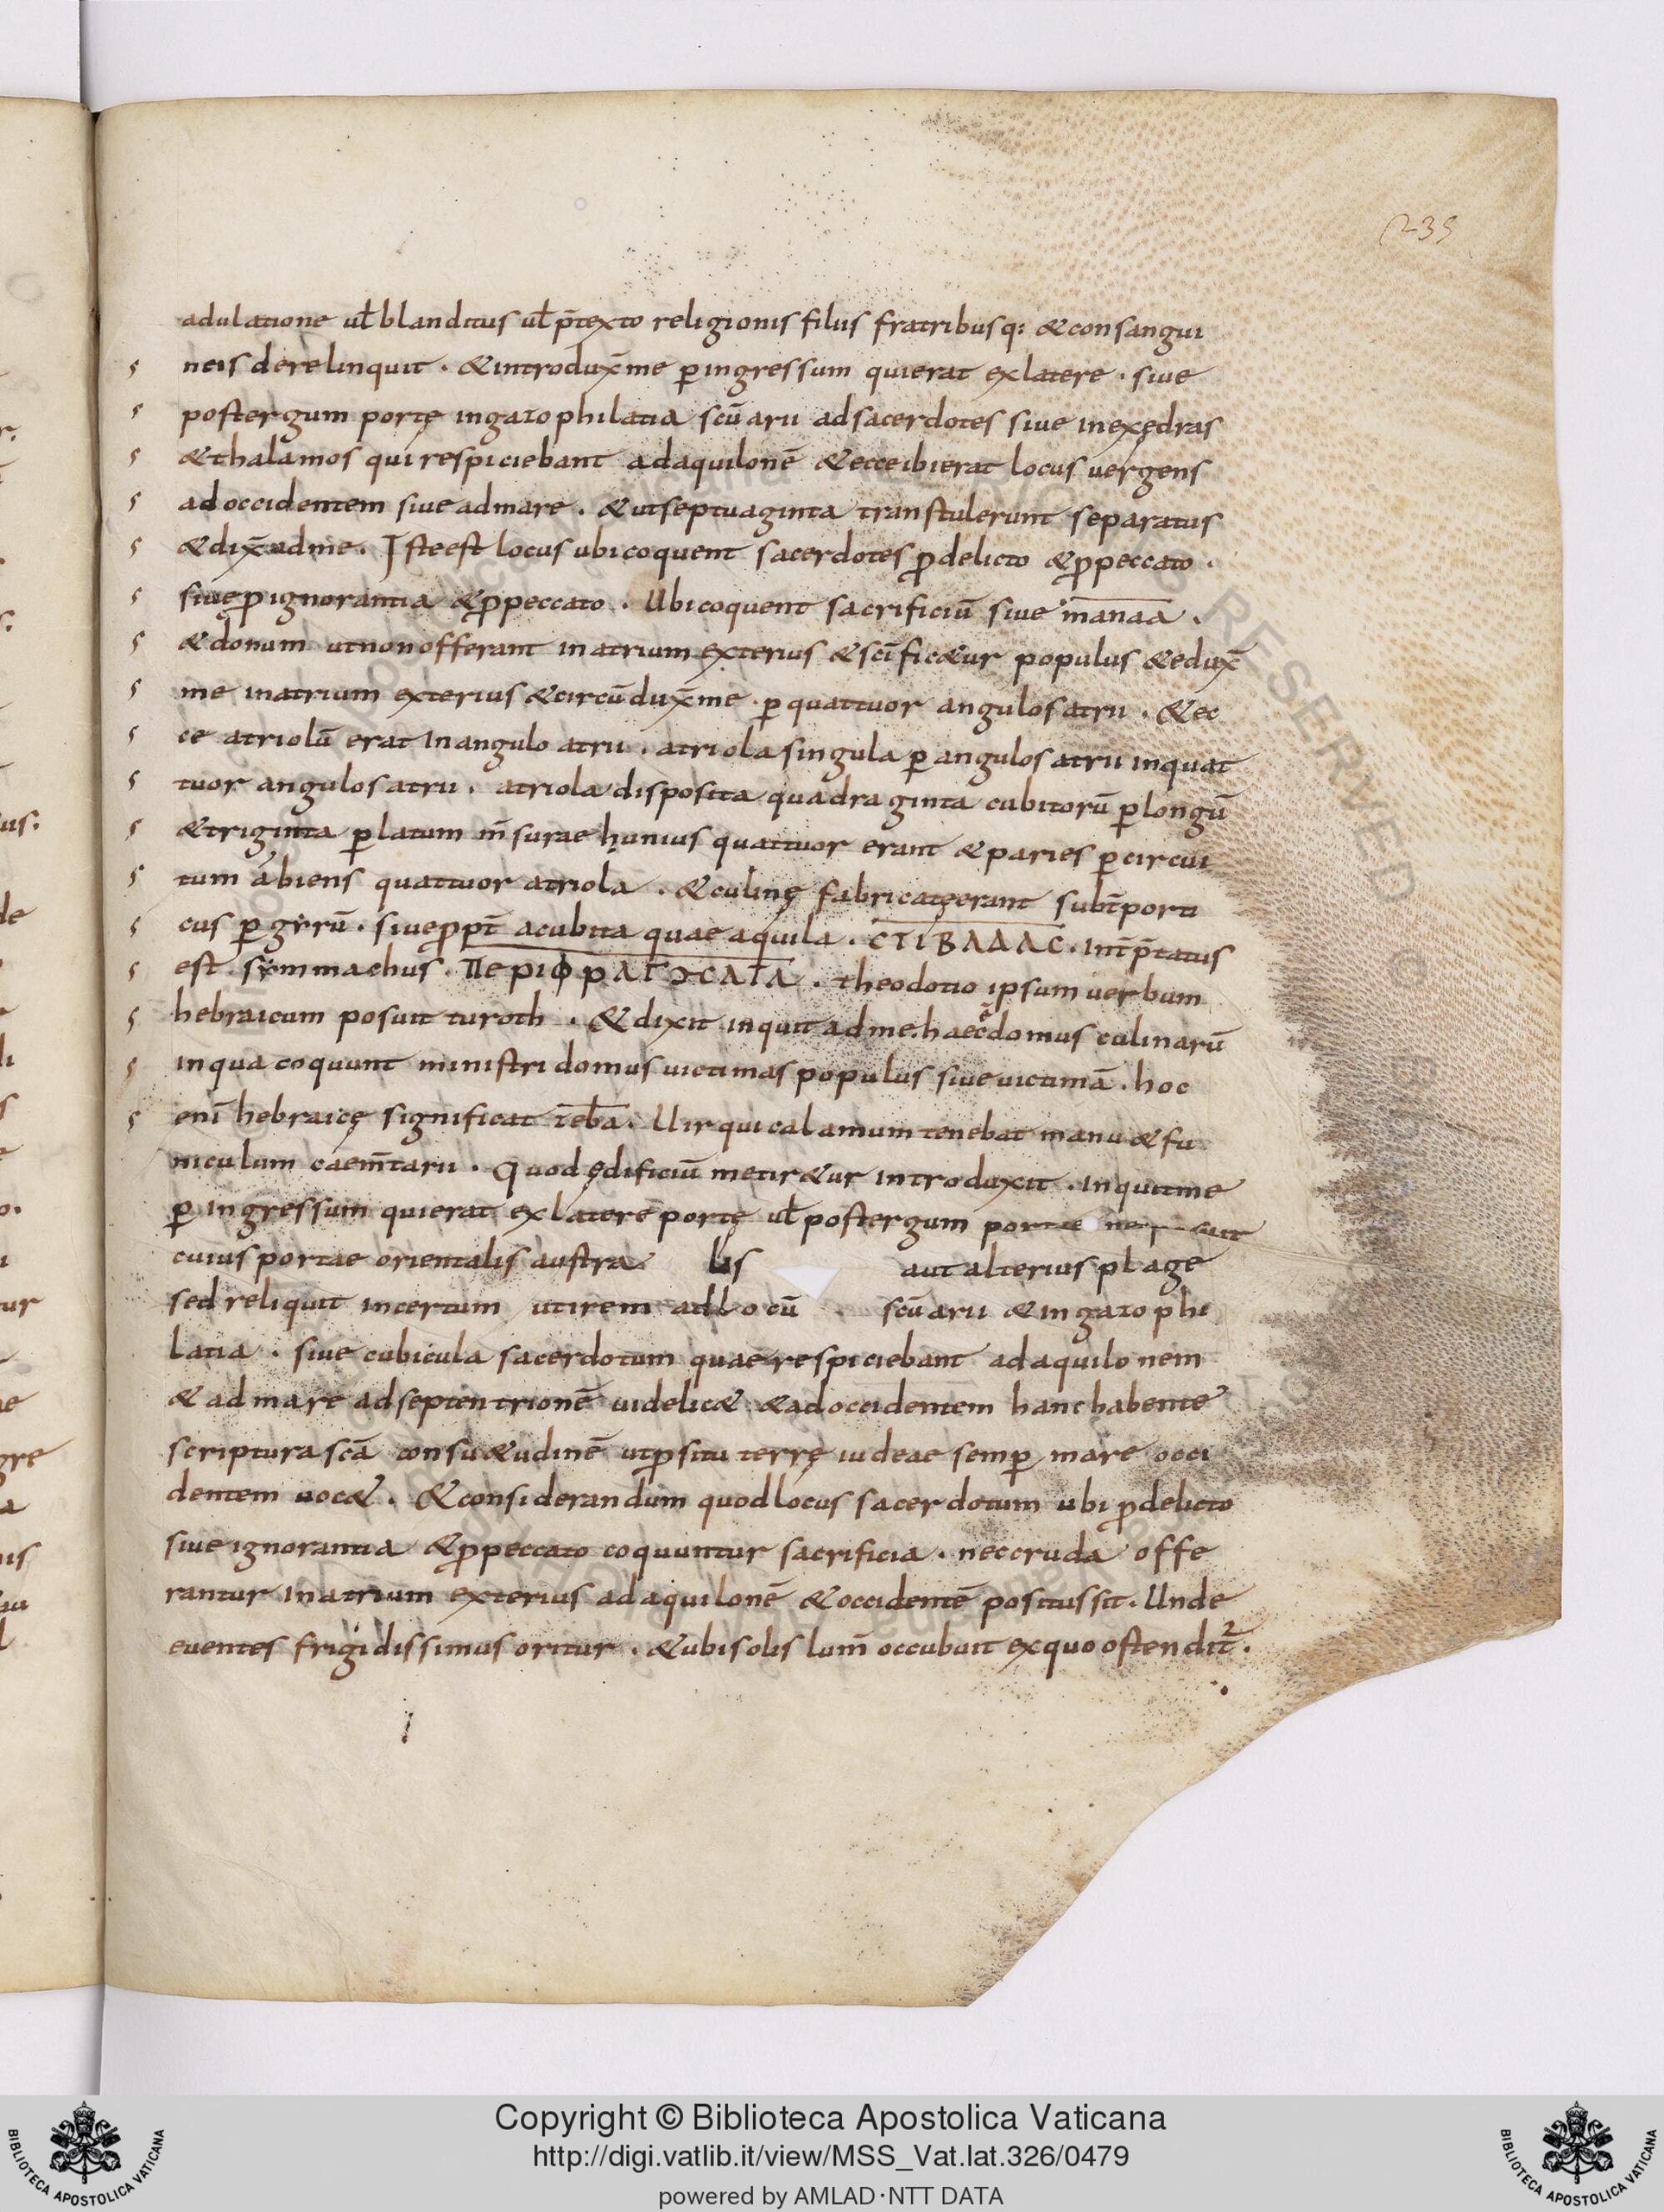 235
adulatione ul̄ blanditus ul̄ p̄texto religionis filiis fratribusq: & consangui
neis derelinquit . & introdux̄ me p̱ ingressum qui erat ex latere . siue
post ergum portę in gazophilatia scūarii ad sacerdotes siue in exędras
& thalamos qui respiciebant ad aquilonē & ecce ibi erat locus uergens
ad occidentem siue ad mare . & ut septuaginta transtulerunt separatus
& dix̄ ad me . Iste est locus ubi coquent sacerdotes ꝓ delicto & ꝓ peccato .
siue ꝓ ignorantia & ꝓ peccato . Ubi coquent sacrificiū siue manaa .
& donum ut non offerant in atrium exterius & scīfic&ur populus & edux̄
me in atrium exterius & circūdux̄ me . p̱ quattuor angulos atrii . & ec
ce atriolū erat in angulo atrii . atriola singula p̱ angulos atrii in quat
tuor angulos atrii . atriola disposita quadraginta cubitorū p̱ longū
& triginta p̱ latum m̄surae hunius quattuor erant & paries p̱ circui
tum abiens quattuor atriola . & culinę fabricatę erant subt̄ porti
cus p̱ gyrū . siue ꝓpt̄ acubita quae aquila . CTIBAΔAC . int̄p̄tatus
est . symmachus . ΠΕΡΙΦΡΑΓΟCATA . theodotio ipsum uerbum
hebraicum posuit turoth . & dixit inquit ad me . haec ę̄ domus culinarū
in qua coquunt ministri domus uictimas populus siue uictimā . hoc
enī hebraicę significat zeba . Uir qui calamum tenebat manu & fu
niculum caem̄tarii . Quod ędificiū metir&ur introduxit . inquit me
p̱ ingressum qui erat ex latere portę ul̄ post ergum portae
cuius portae orientalis austra lis aut alterius plage
sed reliquit incertum ut irem ad locū . scūarii & in gazophi
latia . siue cubicula sacerdotum quae respiciebant ad aquilonem
& ad mare ad septentrionē uidelic& & ad occidentem hanc habente
scriptura scā consu&udinē ut ꝓ situ terrę iudeae semp̱ mare occi
dentem uoc& . & considerandum quod locus sacerdotum ubi ꝓ delicto
siue ignorantia & ꝓ peccato coquuntur sacrificia . nec cruda offe
rantur in atrium exterius ad aquilonē & occidentē positus sit . Unde
euentes frigidissimus oritur . & ubi solis lum̄ occubuit ex quo ostendit² .
Copyright © Biblioteca Apostolica Vaticana
http://digi.vatlib.it/view/MSS_Vat.lat.326/0479
powered by AMLAD·NTT DATA
BIBLIOTECA APOSTOLICA VATICANA
BIBLIOTECA APOSTOLICA VATICANA